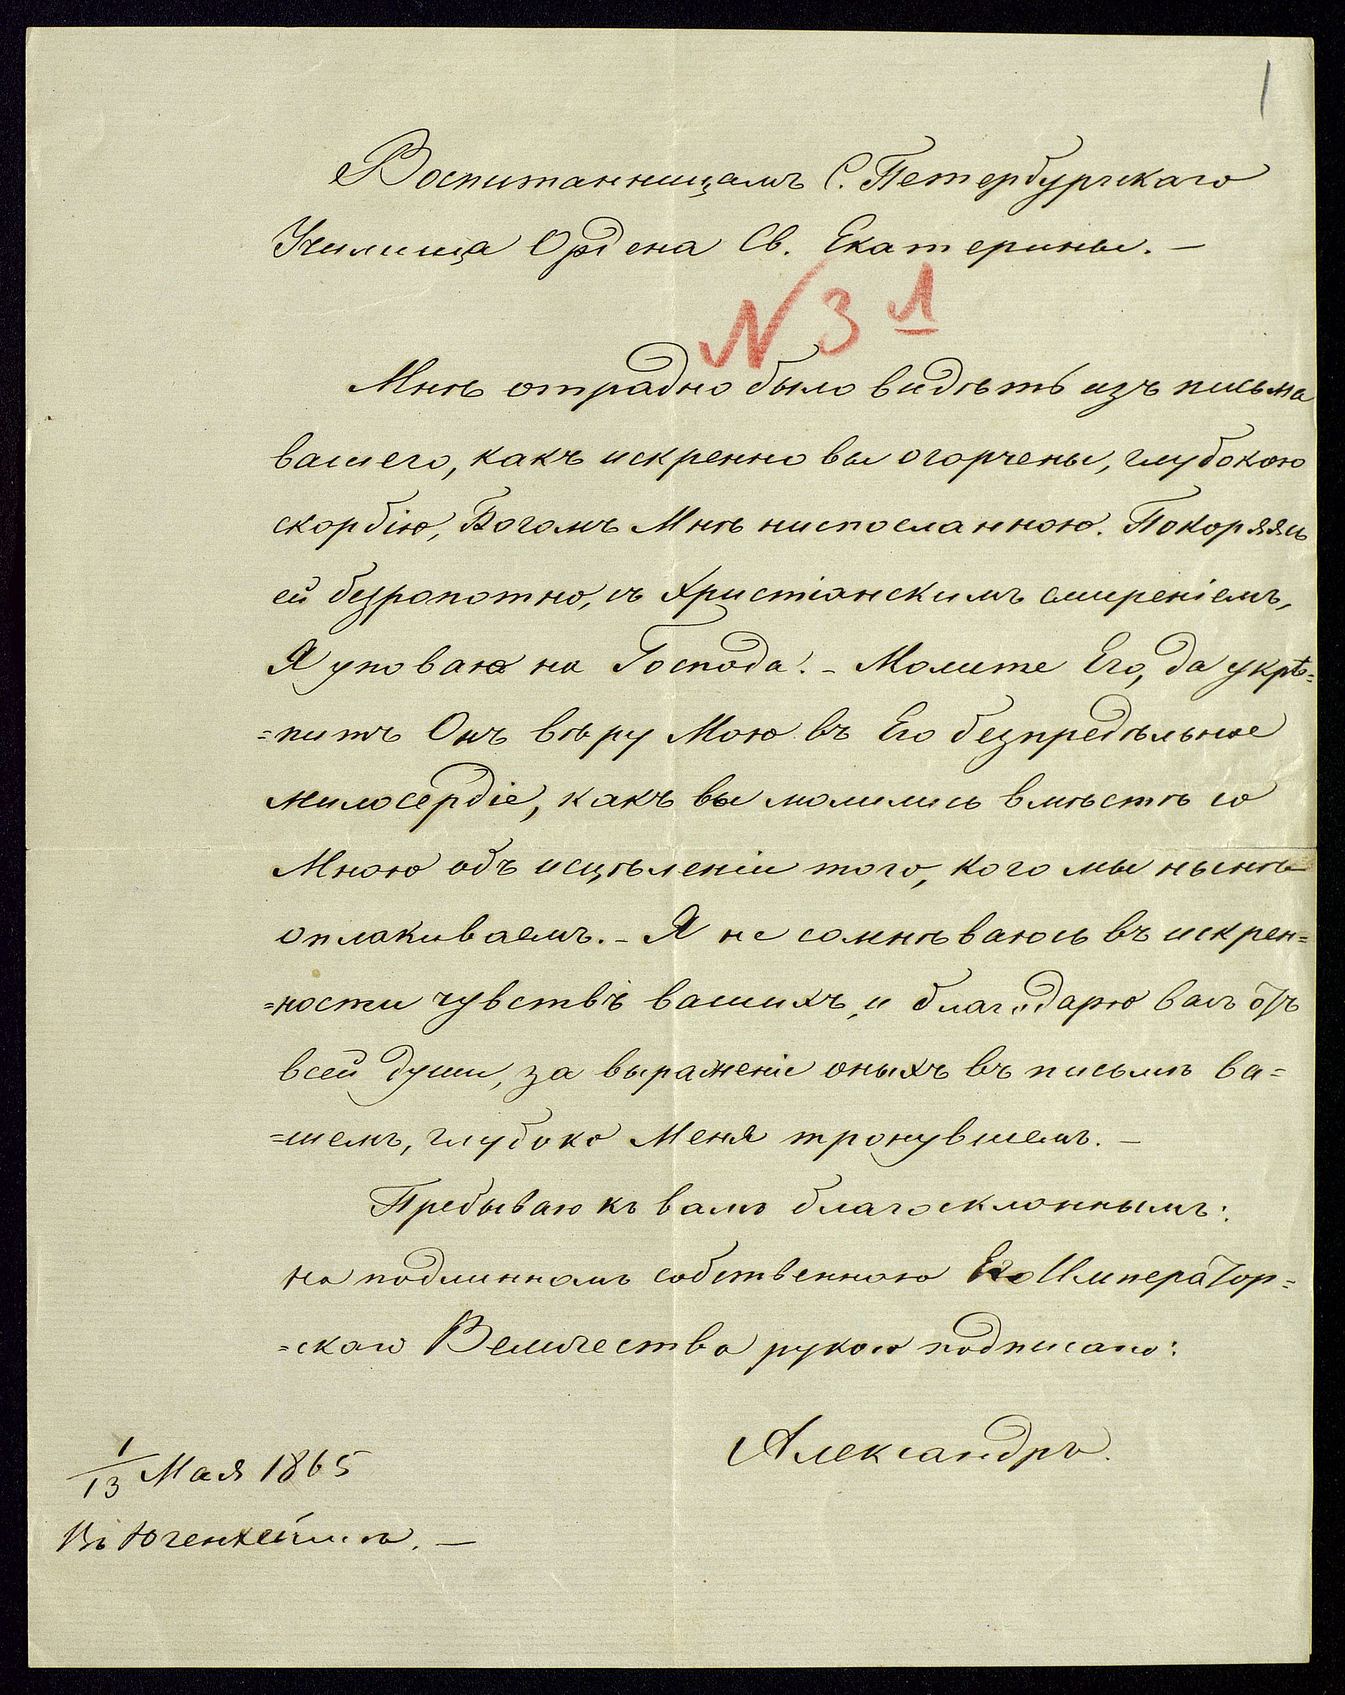 1
Воспитанницамъ С. Петербургскаго
Училища Ордена Св. Екатерины. –
N 3 1
Мнѣ отрадно было видѣть изъ письма
вашего, какъ искренно вы огорчены, глубокою
скорбію, Богомъ Мнѣ ниспосланною. Покоряясь
ей безропотно, съ Христіанскимъ смиреніемъ,
Я уповаю на Господа. – Молите Его, да укрѣ=
=питъ Онъ вѣру Мою въ Его безпредѣльное
милосердіе, какъ вы молились вмѣстѣ со
Мною объ исцѣленіи того, кого мы нынѣ
оплакиваемъ. – Я не сомнѣваюсь въ искрен=
=ности чувствъ вашихъ, и благодарю васъ отъ
всей души, за выраженіе оныхъ въ письмѣ ва=
=шемъ, глубоко Меня тронувшемъ. –
Пребываю къ вамъ благосклоннымъ:
на подлинномъ собственною Его Император=
=скаго Величества рукою подписано:
Александръ.
1/13 Мая 1865
Въ Югенхеймѣ. –